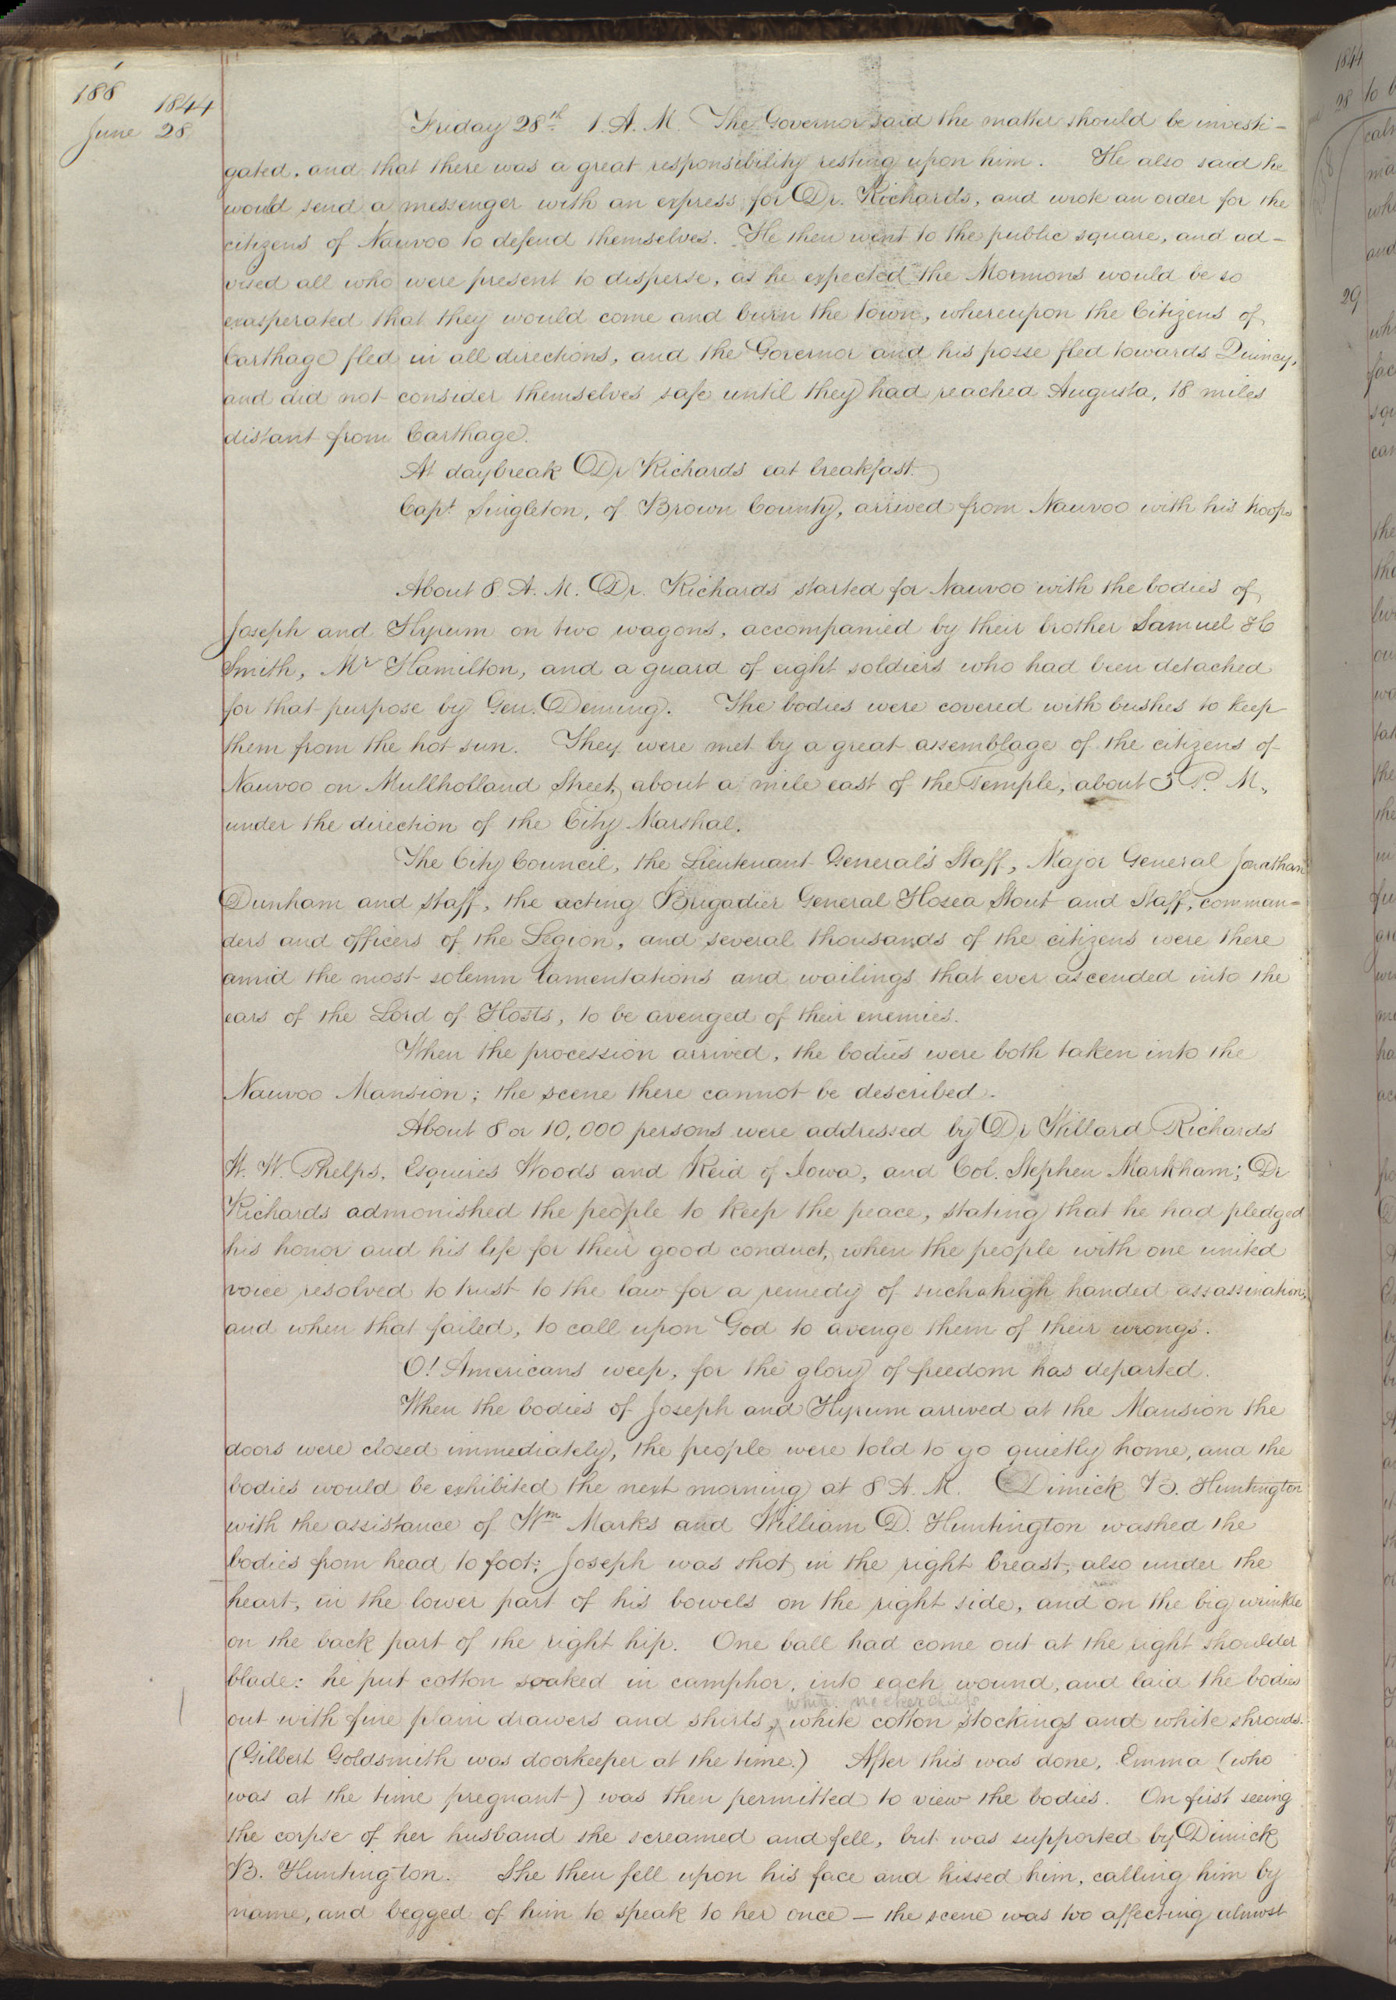 188
1844
June 28
Friday 28th. 1. A. M. The Governor said the matter should be investi-
gated, and that there was a great responsibility resting upon him. He also said he
would send a messenger with an express for Dr. Richards, and wrote an order for the
citizens of Nauvoo to defend themselves. He then went to the public square, and ad-
vised all who were present to disperse, as he expected the Mormons would be so
exasperated that they would come and burn the town, whereupon the Citizens of
Carthage fled in all directions, and the Governor and his posse fled towards Quincy,
and did not consider themselves safe until they had reached Augusta, 18 miles
distant from Carthage.
At daybreak Dr Richards eat breakfast.
Capt. Singleton, of Brown County, arrived from Nauvoo with his troops
About 8 A. M. Dr. Richards started for Nauvoo with the bodies of
Joseph and Hyrum on two wagons, accompanied by their brother Samuel H
Smith, Mr Hamilton, and a guard of eight soldiers who had been detached
for that purpose by Gen. Deming. The bodies were covered with bushes to keep
them from the hot sun. They were met by a great assemblage of the citizens of
Nauvoo on Mullholland Street, about a mile east of the Temple, about 3 P. M.,
under the direction of the City Marshal.
The City Council, the Lieutenant General's Staff, Major General Jonathan
Dunham and staff, the acting Brigadier General Hosea Stout and Staff, comman-
ders and officers of the Legion, and several thousands of the citizens were there
amid the most solemn lamentations and wailings that ever ascended into the
ears of the Lord of Hosts, to be avenged of their enemies.
When the procession arrived, the bodies were both taken into the
Nauvoo Mansion; the scene there cannot be described.
About 8 or 10,000 persons were addressed by Dr Willard Richards
W. W. Phelps, Esquires Woods and Reid of Iowa, and Col. Stephen Markham; Dr
Richards admonished the people to keep the peace, stating that he had pledged
his honor and his life for their good conduct, when the people with one united
voice resolved to trust to the law for a remedy of such a high handed assassination,
and when that failed, to call upon God to avenge them of their wrongs.
O! Americans weep, for the glory of freedom has departed.
When the bodies of Joseph and Hyrum arrived at the Mansion the
doors were closed immediately, the people were told to go quietly home, and the
bodies would be exhibited the next morning at 8 A. M. Dimick B. Huntington
with the assistance of Wm Marks and William D. Huntington washed the
bodies from head to foot; Joseph was shot in the right breast, also under the
heart, in the lower part of his bowels on the right side, and on the big wrinkle
on the back part of the right hip. One ball had come out at the right shoulder
blade: he put cotton soaked in camphor, into each wound, and laid the bodies
white neckerchiefs
out with fine plain drawers and shirts, white cotton stockings and white shrouds.
(Gilbert Goldsmith was doorkeeper at the time.) After this was done, Emma (who
was at the time pregnant) was then permitted to view the bodies. On first seeing
the corpse of her husband she screamed and fell, but was supported by Dimick
B. Huntington. She then fell upon his face and kissed him, calling him by
name, and begged of him to speak to her once — the scene was too affecting almost
1844
28
29